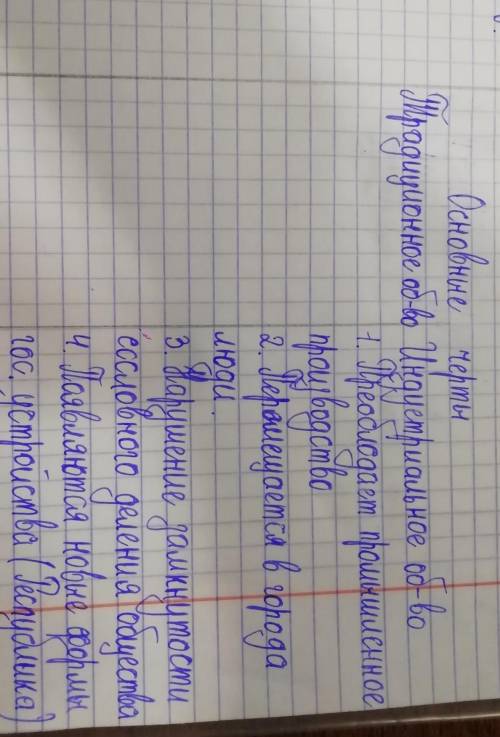 Основные черты
Традиционное об-во Индустриальное об-во
1. Преоблодает промышленное
производство
2. Перемещается в города
люди.
3. Нарушение замкнутости
сословного деления общества
4. Появляются новые формы
гос. устройства (Республика)